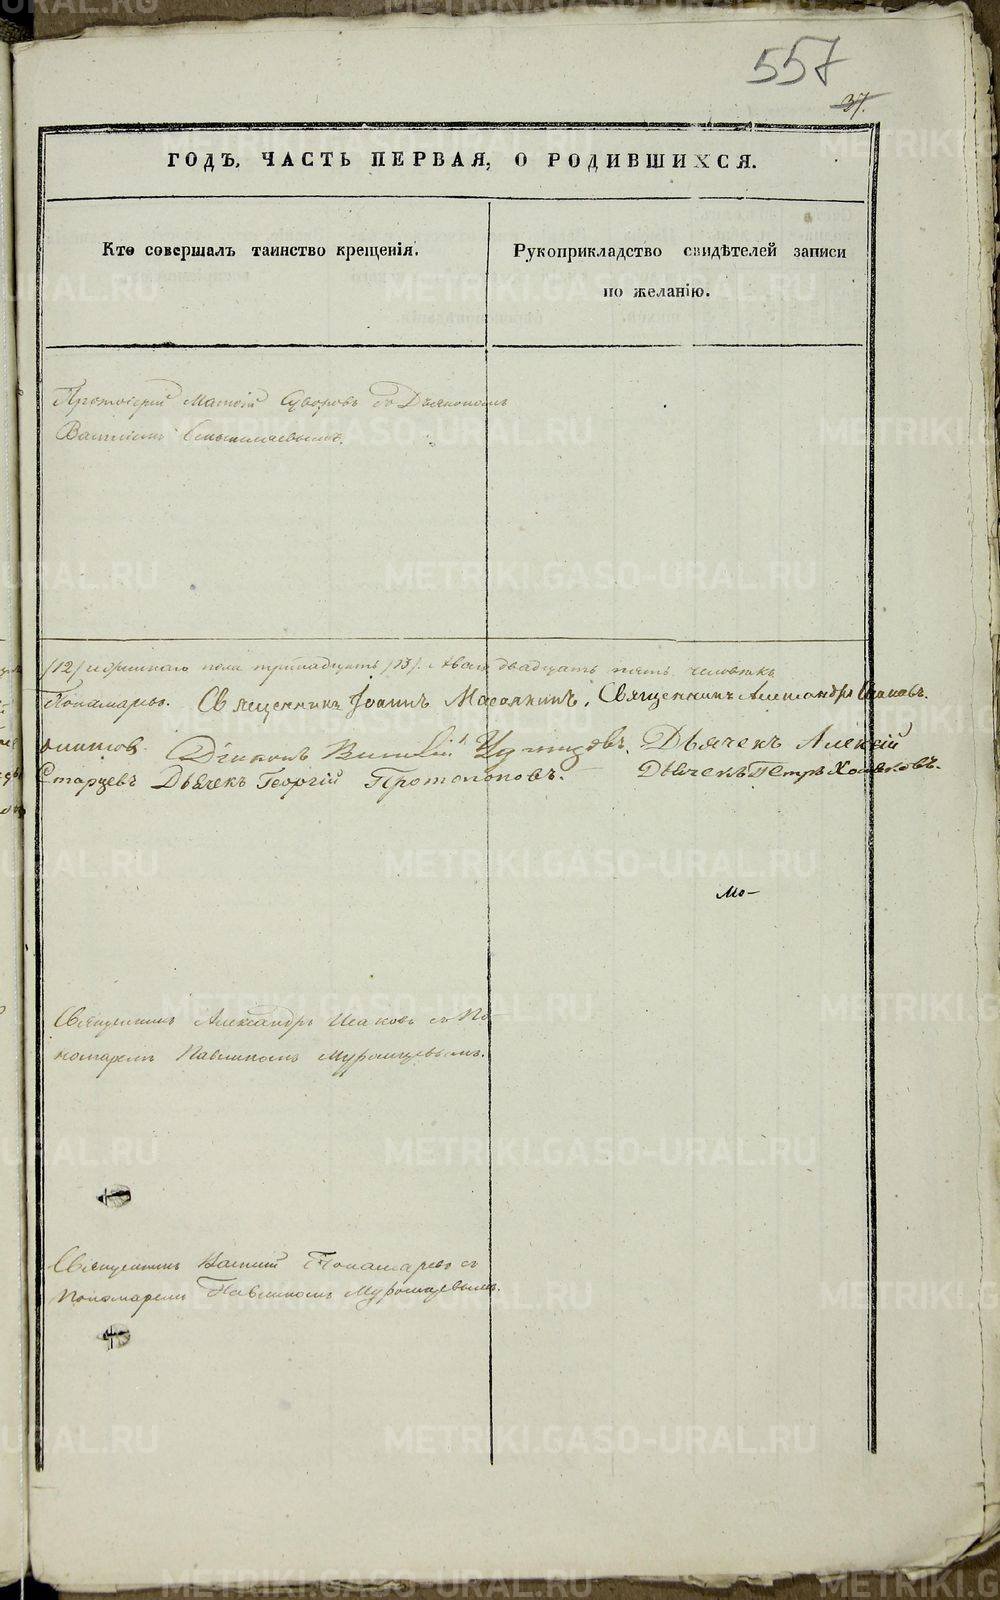 557
37.
ГОДЪ, ЧАСТЬ ПЕРВАЯ, О РОДИВШИХСЯ.
Кто совершалъ таинство крещенія.
Рукоприкладство свидѣтелей записи
по желанію.
Протоіерей Матѳій Суворовъ съ Дьякономъ
(12) и женскаго пола тринадцать (13). Обоего двадцать пять человѣкъ
Пономаревъ. Священникъ Іоаннъ Священникъ Александръ Исаковъ.
Діаконъ Дьячекъ Алексій
Старцевъ Дьячекъ Георгій Протопоповъ. Дьячекъ Петръ
Мо-
Священникъ Александръ Исаковъ съ По
номаремъ Павлиномъ Муромцевымъ.
Священникъ Василій Пономаревъ съ
пономаремъ Павлиномъ Муромцевымъ.
METRIKI.GASO-URAL.RU